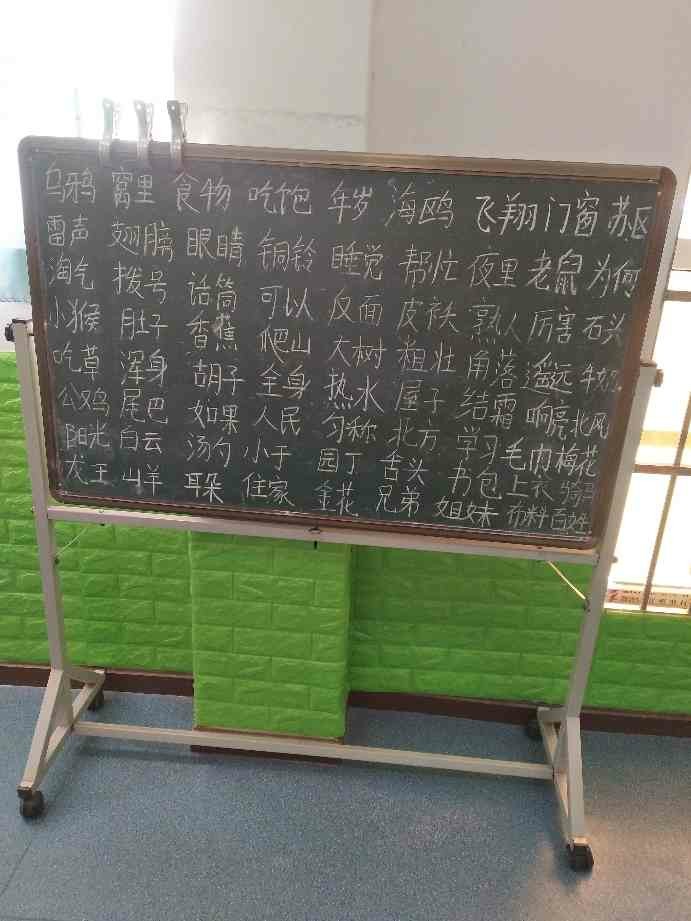 乌鸦 窝里 食物 吃饱 年岁 海鸥 飞翔 门窗 苏区
雷声 翅膀 眼睛 铜铃 睡觉 帮忙 夜里 老鼠 为何
淘气 拨号 话筒 可以 反面 皮袄 熟人 厉害 石头
小猴 肚子 香蕉 爬山 大树 粗壮 角落 遥远
吃草 浑身 胡子 全身 热水 屋子 结霜 响亮 北风
公鸡 尾巴 如果 人民 匀称 北方 学习 毛巾 梅花
阳光 白云 汤勺 小于 园丁 舌头 书包 上衣
龙王 山羊 耳朵 住家 金花 兄弟 姐妹 布料 百姓